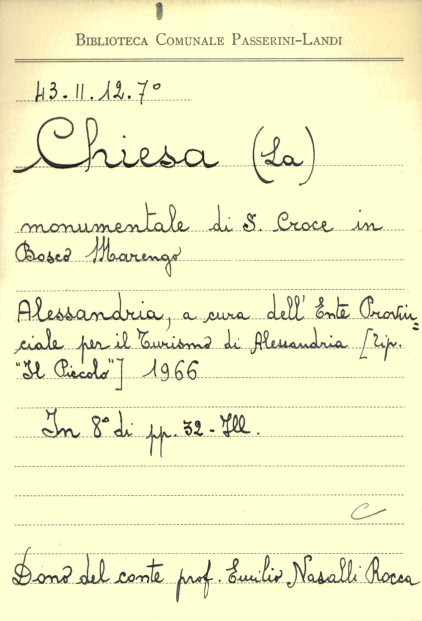 BIBLIOTECA COMUNALE PASSERINI-LANDI
43.II.12.7°
Chiesa (La)
monumentale di S. Croce in
Bosco Marengo
Alessandria, a cura dell'Ente Provin=
ciale per il Turismo di Alessandria [Tip.
"Il Piccolo"] 1966
In 8° di pp. 32 - Ill.
C
Dono del conte prof. Emilio Nasalli Rocca